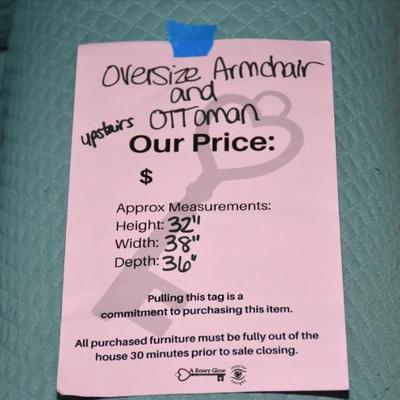 Oversize Armchair
and
upstairs OTToman
Our Price:
$
Approx Measurements:
Height: 32"
Width: 38"
Depth: 36"
Pulling this tag is a
commitment to purchasing this item.
All purchased furniture must be fully out of the
house 30 minutes prior to sale closing.
A Rosey Glow